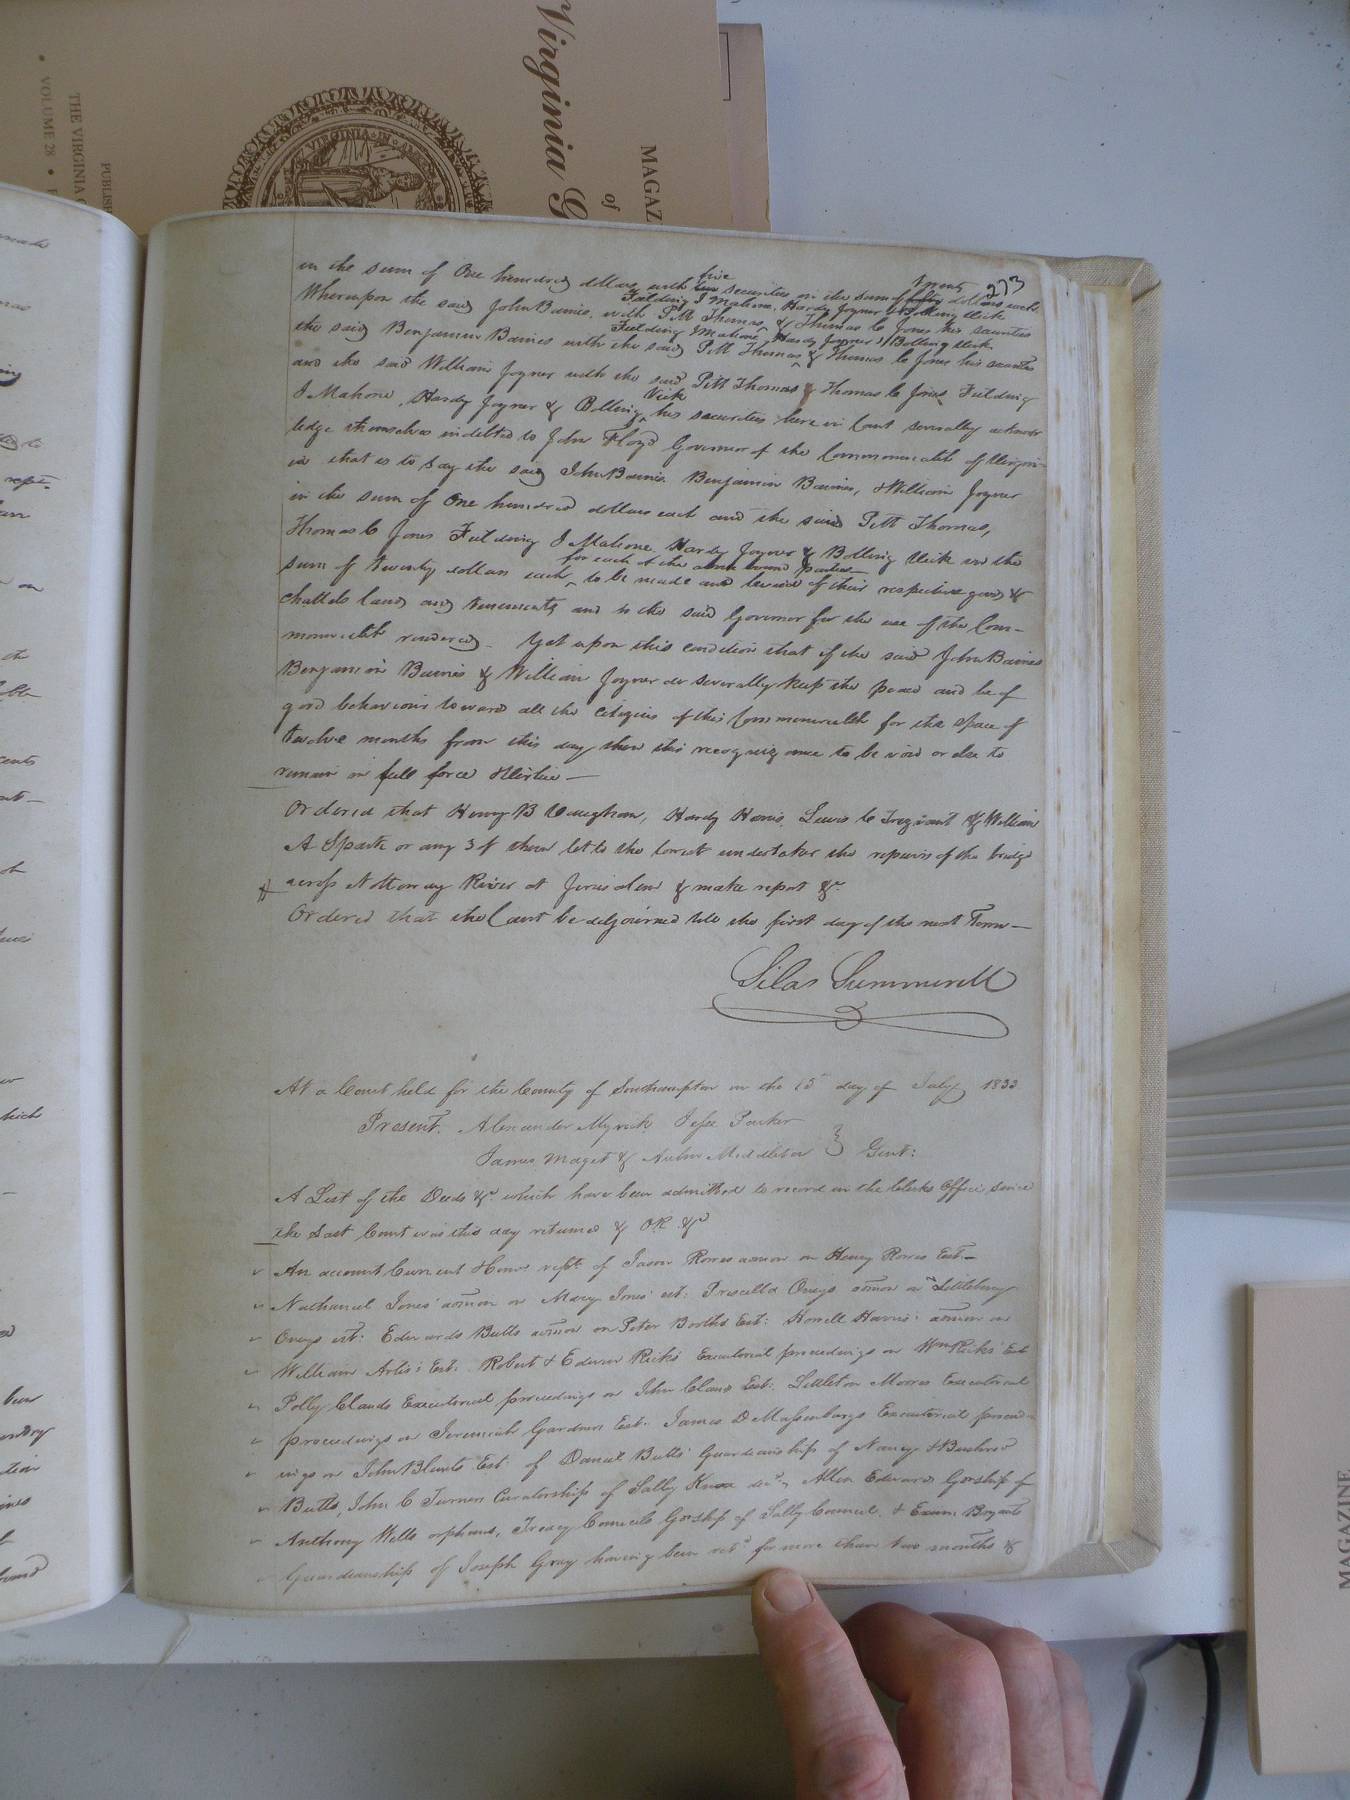 Virginia G
MAGAZ
of
PUBLISH
THE VIRGINIA
• VOLUME 28 •
VIRGINIA IN
273
in the sum of One hundred dollars with five securities in the sum of twenty dollars each.
Whereupon the said John Barnes, with Pitt Thomas, Fielding J Mahone, Hardy Joyner & Bolling Vick & Thomas C Jones his securities
the said Benjamin Barnes with the said Pitt Thomas, Fielding Mahone, Hardy Joyner, Bolling Vick & Thomas C Jones his securities
and the said William Joyner with the said Pitt Thomas & Thomas C Jones Fielding
J Mahone, Hardy Joyner & Bolling Vick his securities here in Court severally acknow
ledge themselves indebted to John Floyd Governor of the Commonwealth of Virgin-
ia that is to say the said John Barnes Benjamin Barnes, & William Joyner
in the sum of One hundred dollars each and the said Pitt Thomas,
Thomas C Jones Fielding J Mahone Hardy Joyner & Bolling Vick in the
sum of twenty dollars each for each of the above bound parties to be made and levied of their respective goods &
chattels lands and tenements and to the said Governor for the use of the Com-
monwealth rendered. Yet upon this condition that if the said John Barnes
Benjamin Barnes & William Joyner do severally keep the peace and be of
good behaviour toward all the citizens of this Commonwealth for the space of
twelve months from this day then this recognizance to be void or else to
remain in full force & virtue —
Ordered that Henry B Vaughan, Hardy Harris, Lewis C Trezvant & William
A Spark or any 3 of them let to the lowest undertaker the repairs of the bridge
across Nottoway River at Jerusalem & make report &c.
Ordered that the Court be adjourned till the first day of the next Term —
Silas Summerell
At a Court held for the County of Southampton on the 15 day of July 1833
Present. Alexander Myrick Jesse Parker
James Maget & Middleton } Gent:
A List of the Deeds &c. which have been admitted to record in the Clerks Office since
the last Court was this day returned & OR &c
An account Current of Jason Rowes admor on Henry Rowes Est—
Nathaniel Jones' admor on Mary Jones' est: Priscilla admor on Littleberry
est: Edwards Butts admor on Peter Booths Est: Howell Harris: admor on
William Artis's Est: Robert & Edwin Ricks' Executorial proceedings on Wm Ricks' Est
Polly Clauds Executorial proceedings on John Clauds Est: Littleton Moores Executorial
proceedings on Jeremiah Gardners Est. James D Massenburgs Executorial proceed
ings on John Blunts Est: of Daniel Butts' Guardianship of Nancy &
Butts, John C Turners Curatorship of Sally Knox decd., Allen Edwards Gdship of
Anthony Wells orphans, Treacy Councils Gdship of Sally Council, & Exum Bryants
Guardianship of Joseph Gray having been retd for more than two months &
MAGAZINE